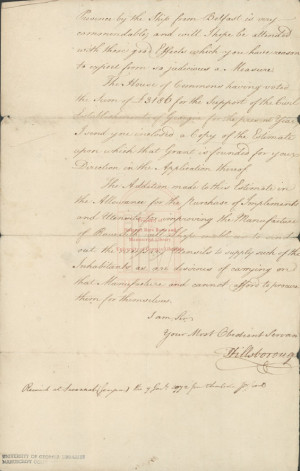 Province by the Ship from Belfast is very
commendable, and will I hope be attended
with those good Effects which you have reason
to expect from so judicious a Measure.
The House of Commons having voted
the Sum of £3186 for the Support of the Civil
Establishment of Georgia for the present Year
I send you inclosed a Copy of the Estimate
upon which that Grant is founded for your
Direction in the Application thereof.
The Addition made to this Estimate in
the Allowance for the Purchase of Implements
and Utensils for improving the Manufacture
of
out the necessary Utensils to supply such of the
Inhabitants as are desirous of carrying on
that Manufacture and cannot afford to procure
them for themselves.
I am Sir
Your Most Obedient Servant
Hillsborough
Received at Savannah (Georgia) the
UNIVERSITY OF GEORGIA LIBRARIES
MANUSCRIPT